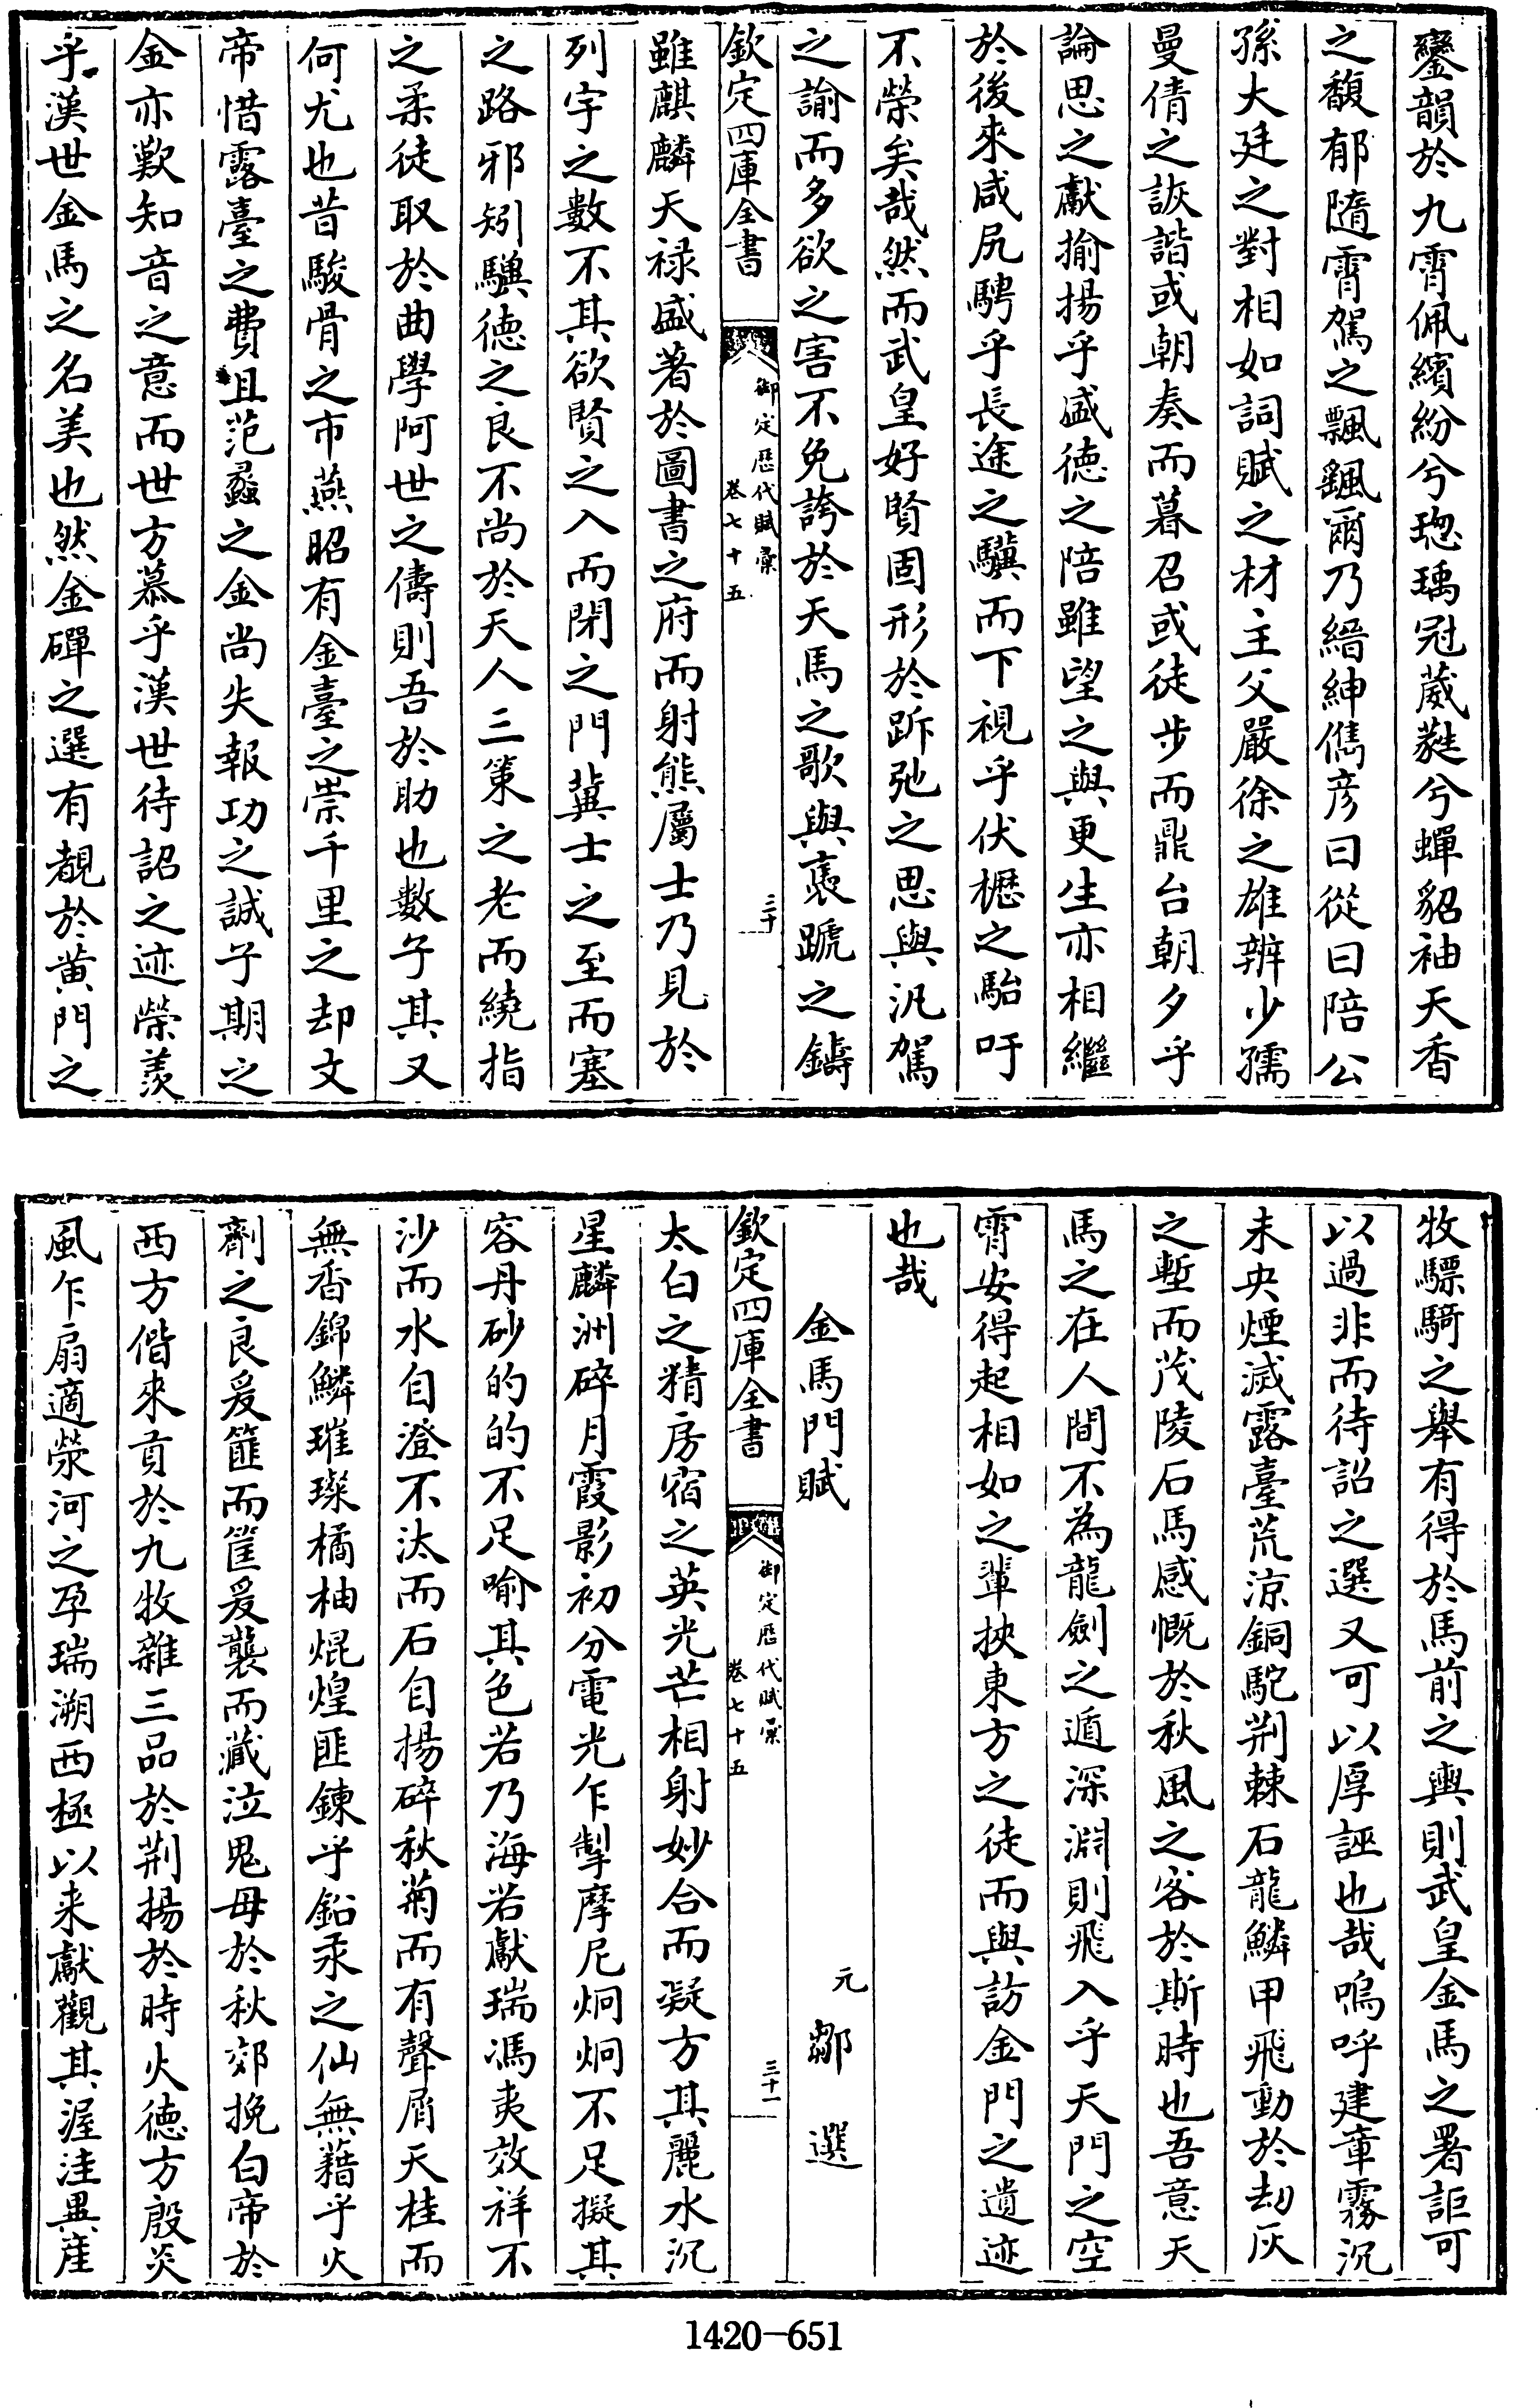 鑾韻於九霄佩繽紛兮璁瑀冠葳蕤兮蟬貂袖天香
之馥郁隨霄駕之飄颻爾乃縉紳儁彦曰從曰陪公
孫大廷之對相如詞賦之材主父嚴徐之雄辨少孺
曼倩之詼諧或朝奏而暮召或徒步而鼎台朝夕乎
論思之獻揄揚乎盛徳之陪雖望之與更生亦相繼
於後來咸尻騁乎長途之驥而下視乎伏櫪之駘吁
不榮矣哉然而武皇好賢固形於跅弛之思與汎駕
之諭而多欲之害不免誇於天馬之歌與褭蹏之鑄
欽定四庫全書
御定歴代賦彙
卷七十五
三十
雖麒麟天禄盛著於圖書之府而射熊屬士乃見於
列宇之數不其欲賢之入而閉之門冀士之至而塞
之路邪矧驥徳之良不尚於天人三策之老而繞指
之柔徒取於曲學阿世之儔則吾於助也數子其又
何尤也昔駿骨之市燕昭有金臺之崇千里之却文
帝惜露臺之費且范蠡之金尚失報功之誠子期之
金亦歎知音之意而世方慕乎漢世待詔之迹榮羨
乎漢世金馬之名美也然金磾之選有覩於黄門之
牧驃騎之舉有得於馬前之輿則武皇金馬之署詎可
以過非而待詔之選又可以厚誣也哉嗚呼建章霧沉
未央煙滅露臺荒涼銅駝荆棘石龍鱗甲飛動於刼灰
之塹而茂陵石馬感慨於秋風之客於斯時也吾意天
馬之在人間不為龍劍之遁深淵則飛入乎天門之空
霄安得起相如之輩挾東方之徒而與訪金門之遺迹
也哉
金馬門賦
元 鄒選
欽定四庫全書
御定歴代賦彙
卷七十五
三十一
太白之精房宿之英光芒相射妙合而凝方其麗水沉
星麟洲碎月霞影初分電光乍掣摩尼炯炯不足擬其
容丹砂的的不足喻其色若乃海若獻瑞馮夷效祥不
沙而水自澄不汰而石自揚碎秋菊而有聲屑天桂而
無香錦鱗璀璨橘柚焜煌匪鍊乎鉛汞之仙無藉乎火
劑之良爰篚而筐爰襲而藏泣鬼母於秋郊挽白帝於
西方偕來貢於九牧雜三品於荆揚於時火徳方殷炎
風乍扇適滎河之孕瑞溯西極以来獻觀其渥洼異産
1420-651